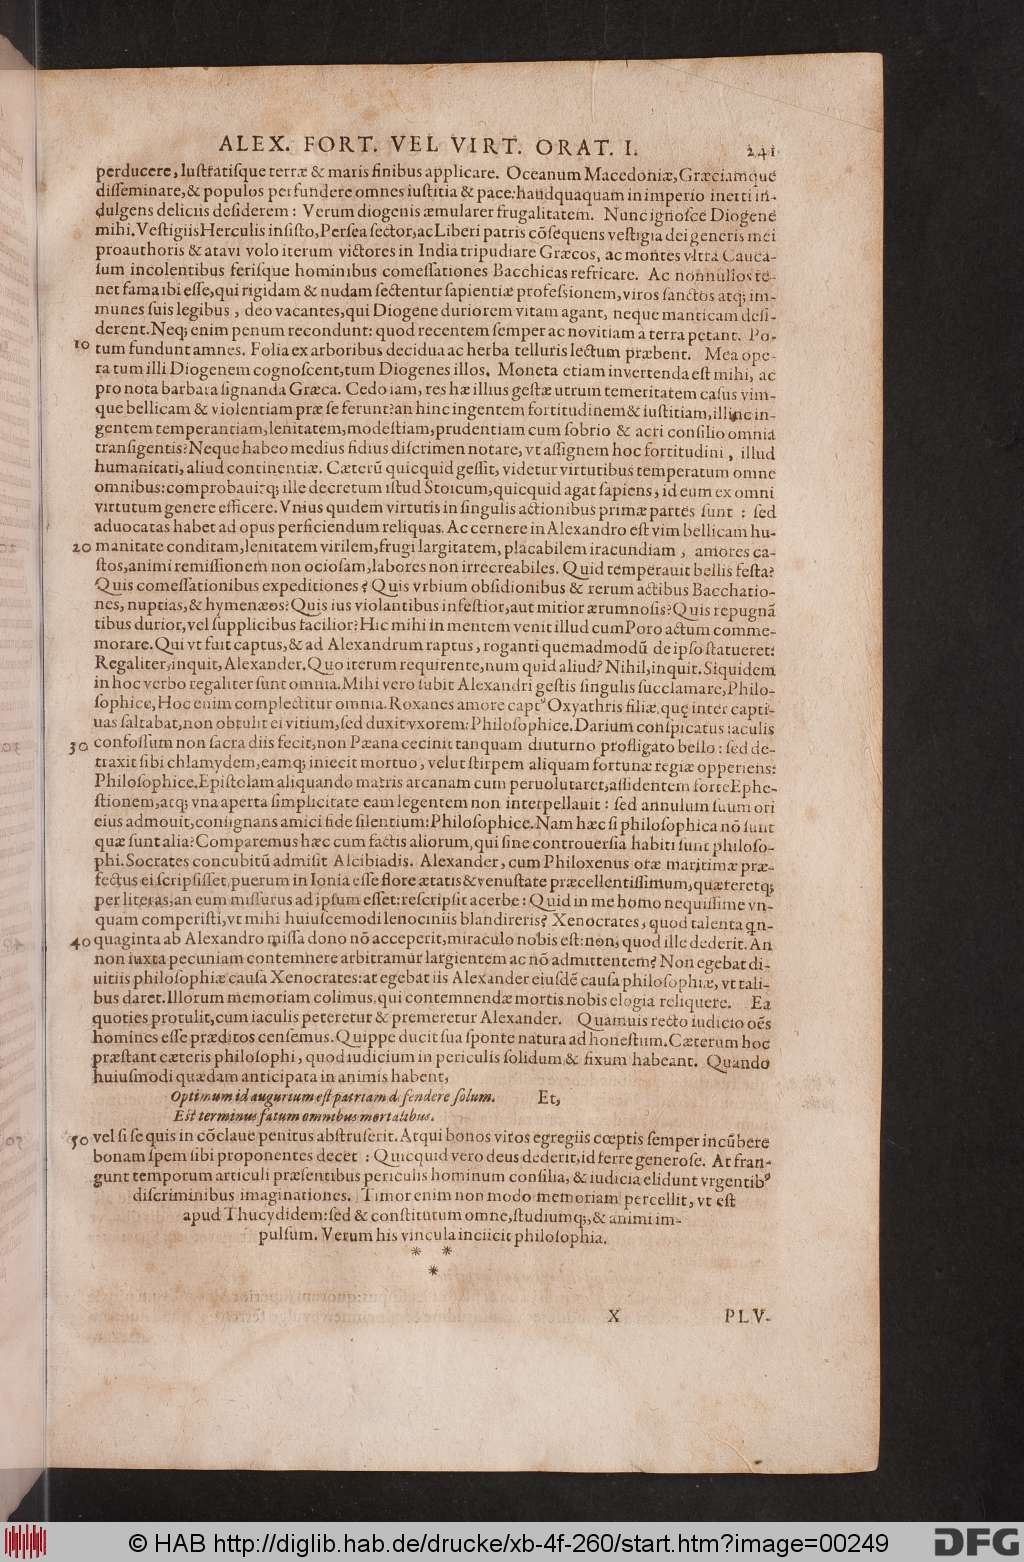 ALEX. FORT. VEL VIRT. ORAT. I. 241
perducere, lustratisque terræ & maris finibus applicare. Oceanum Macedoniæ, Græciamque
disseminare, & populos perfundere omnes iustitia & pace: haudquaquam in imperio inerti in-
dulgens deliciis desiderem: Verum diogenis æmularer frugalitatem. Nunc ignosce Diogene
mihi. Vestigiis Herculis insisto, Persea sector, ac Liberi patris cõsequens vestigia dei generis mei
proauthoris & atavi volo iterum victores in India tripudiare Græcos, ac montes vltra Cauca-
sum incolentibus ferisque hominibus comessationes Bacchicas refricare. Ac nonnullos te-
net fama ibi esse, qui rigidam & nudam sectentur sapientiæ professionem, viros sanctos atq; im-
munes suis legibus, deo vacantes, qui Diogene duriorem vitam agant, neque manticam desi-
derent. Neq; enim penum recondunt: quod recentem semper ac novitiam a terra petant. Po-
10 tum fundunt amnes. Folia ex arboribus decidua ac herba telluris lectum præbent. Mea ope-
ra tum illi Diogenem cognoscent, tum Diogenes illos. Moneta etiam invertenda est mihi, ac
pro nota barbara signanda Græca. Cedo iam, res hæ illius gestæ utrum temeritatem casus vim-
que bellicam & violentiam præ se ferunt? an hinc ingentem fortitudinem & iustitiam, illinc in-
gentem temperantiam, lenitatem, modestiam, prudentiam cum sobrio & acri consilio omnia
transigentis? Neque habeo medius fidius discrimen notare, vt assignem hoc fortitudini, illud
humanitati, aliud continentiæ. Cæterũ quicquid gessit, videtur virtutibus temperatum omne
omnibus: comprobauitq; ille decretum istud Stoicum, quicquid agat sapiens, id eum ex omni
virtutum genere efficere. Vnius quidem virtutis in singulis actionibus primæ partes sunt: sed
aduocatas habet ad opus perficiendum reliquas. Ac cernere in Alexandro est vim bellicam hu-
20 manitate conditam, lenitatem virilem, frugi largitatem, placabilem iracundiam, amores ca-
stos, animi remissionem non ociosam, labores non irrecreabiles. Quid temperauit bellis festa?
Quis comessationibus expeditiones? Quis vrbium obsidionibus & rerum actibus Bacchatio-
nes, nuptias, & hymenæos? Quis ius violantibus infestior, aut mitior ærumnosis? Quis repugnã
tibus durior, vel supplicibus facilior? Hic mihi in mentem venit illud cum Poro actum comme-
morare. Qui vt fuit captus, & ad Alexandrum raptus, roganti quemadmodũ de ipso statueret:
Regaliter, inquit, Alexander. Quo iterum requirente, num quid aliud? Nihil, inquit. Siquidem
in hoc verbo regaliter sunt omnia. Mihi vero subit Alexandri gestis singulis succlamare, Philo-
sophice, Hoc enim complectitur omnia. Roxanes amore capt⁹ Oxyathris filiæ, quę inter capti-
uas saltabat, non obtulit ei vitium, sed duxit vxorem: Philosophice. Darium conspicatus iaculis
30 confossum non sacra diis fecit, non Pæana cecinit tanquam diuturno profligato bello: sed de-
traxit sibi chlamydem, eamq; iniecit mortuo, velut stirpem aliquam fortunæ regiæ opperiens:
Philosophice. Epistolam aliquando matris arcanam cum peruolutaret, assidentem forte Ephe-
stionem, atq; vna aperta simplicitate eam legentem non interpellauit: sed annulum suum ori
eius admouit, consignans amici fide silentium: Philosophice. Nam hæc si philosophica nõ sunt
quæ sunt alia? Comparemus hæc cum factis aliorum, qui sine controuersia habiti sunt philoso-
phi. Socrates concubitũ admisit Alcibiadis. Alexander, cum Philoxenus oræ maritimæ præ-
fectus ei scripsisset, puerum in Ionia esse flore ætatis & venustate præcellentissimum, quæreretq;
per literas, an eum missurus ad ipsum esset: rescripsit acerbe: Quid in me homo nequissime vn-
quam comperisti, vt mihi huiuscemodi lenociniis blandireris? Xenocrates, quod talenta qn-
40 quaginta ab Alexandro missa dono nõ acceperit, miraculo nobis est: non, quod ille dederit. An
non iuxta pecuniam contemnere arbitramur largientem ac nõ admittentem? Non egebat di-
uitiis philosophiæ causa Xenocrates: at egebat iis Alexander eiusdẽ causa philosophiæ, vt tali-
bus daret. Illorum memoriam colimus, qui contemnendæ mortis nobis elogia reliquere. Ea
quoties protulit, cum iaculis peteretur & premeretur Alexander. Quamuis recto iudicio oẽs
homines esse præditos censemus. Quippe ducit sua sponte natura ad honestum. Cæterum hoc
præstant cæteris philosophi, quod iudicium in periculis solidum & fixum habeant. Quando
huiusmodi quædam anticipata in animis habent,
Optimum id augurium est patriam defendere solum. Et,
Est terminus fatum omnibus mortalibus.
50 vel si se quis in cõclaue penitus abstruserit. Atqui bonos viros egregiis cœptis semper incũbere
bonam spem sibi proponentes decet: Quicquid vero deus dederit, id ferre generose. At fran-
gunt temporum articuli præsentibus periculis hominum consilia, & iudicia elidunt vrgentib⁹
discriminibus imaginationes. Timor enim non modo memoriam percellit, vt est
apud Thucydidem: sed & constitutum omne, studiumq;, & animi im-
pulsum. Verum his vincula iniicit philosophia.
* *
*
X PLV-
© HAB http://diglib.hab.de/drucke/xb-4f-260/start.htm?image=00249 DFG